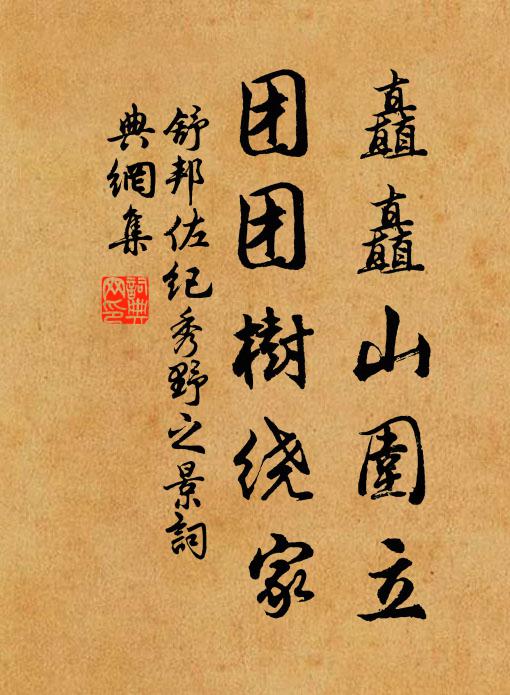 矗矗山圍立
团团樹绕家
舒邦佐纪秀野之景詞
典網集
詞典
网印